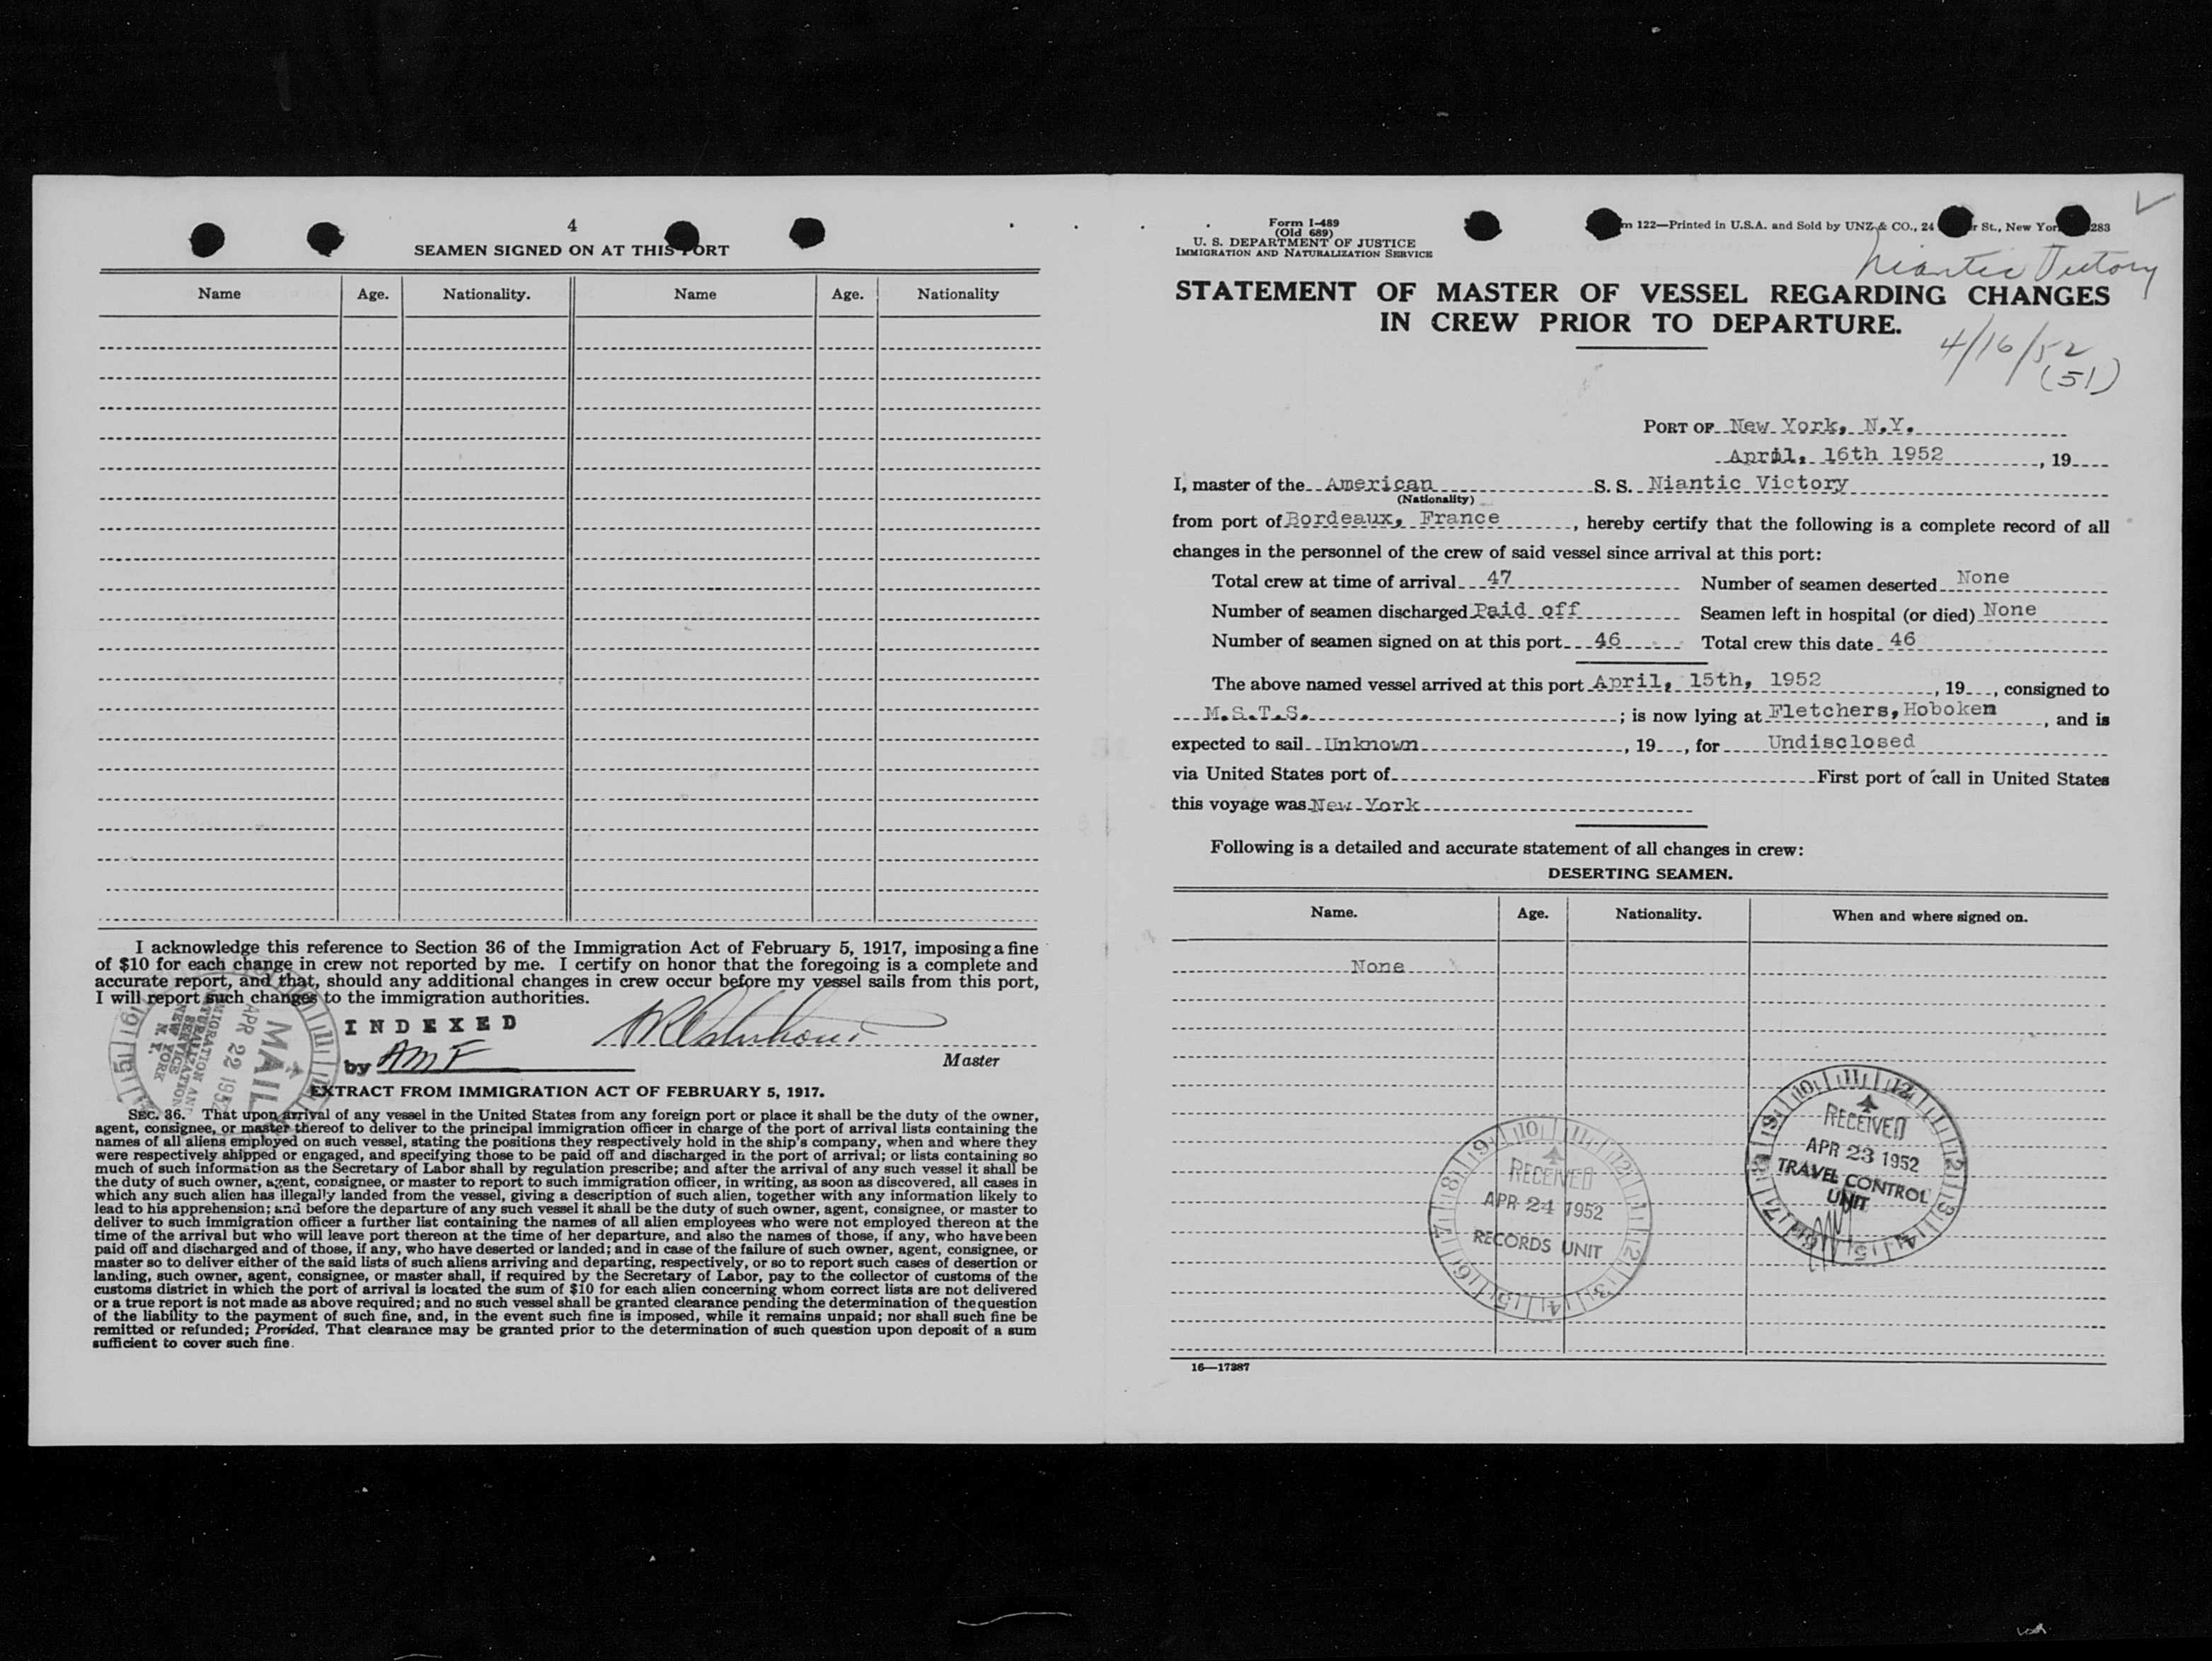 4
SEAMEN SIGNED ON AT THIS PORT
Name Age. Nationality. Name Age. Nationality
I acknowledge this reference to Section 36 of the Immigration Act of February 5, 1917, imposing a fine
of $10 for each change in crew not reported by me. I certify on honor that the foregoing is a complete and
accurate report, and that, should any additional changes in crew occur before my vessel sails from this port,
I will report such changes to the immigration authorities.
INDEXED
by AMF
Master
MAIL
APR 22 1952
IMMIGRATION AND
NATURALIZATION
SERVICE
NEW YORK
N. Y.
EXTRACT FROM IMMIGRATION ACT OF FEBRUARY 5, 1917.
SEC. 36. That upon arrival of any vessel in the United States from any foreign port or place it shall be the duty of the owner,
agent, consignee, or master thereof to deliver to the principal immigration officer in charge of the port of arrival lists containing the
names of all aliens employed on such vessel, stating the positions they respectively hold in the ship's company, when and where they
were respectively shipped or engaged, and specifying those to be paid off and discharged in the port of arrival; or lists containing so
much of such information as the Secretary of Labor shall by regulation prescribe; and after the arrival of any such vessel it shall be
the duty of such owner, agent, consignee, or master to report to such immigration officer, in writing, as soon as discovered, all cases in
which any such alien has illegally landed from the vessel, giving a description of such alien, together with any information likely to
lead to his apprehension; and before the departure of any such vessel it shall be the duty of such owner, agent, consignee, or master to
deliver to such immigration officer a further list containing the names of all alien employees who were not employed thereon at the
time of the arrival but who will leave port thereon at the time of her departure, and also the names of those, if any, who have been
paid off and discharged and of those, if any, who have deserted or landed; and in case of the failure of such owner, agent, consignee, or
master so to deliver either of the said lists of such aliens arriving and departing, respectively, or so to report such cases of desertion or
landing, such owner, agent, consignee, or master shall, if required by the Secretary of Labor, pay to the collector of customs of the
customs district in which the port of arrival is located the sum of $10 for each alien concerning whom correct lists are not delivered
or a true report is not made as above required; and no such vessel shall be granted clearance pending the determination of the question
of the liability to the payment of such fine, and, in the event such fine is imposed, while it remains unpaid; nor shall such fine be
remitted or refunded; Provided, That clearance may be granted prior to the determination of such question upon deposit of a sum
sufficient to cover such fine.
Form I-489
(Old 689)
U. S. DEPARTMENT OF JUSTICE
IMMIGRATION AND NATURALIZATION SERVICE
122—Printed in U.S.A. and Sold by UNZ & CO., 24 St., New York 283
Niantic Victory
STATEMENT OF MASTER OF VESSEL REGARDING CHANGES
IN CREW PRIOR TO DEPARTURE.
4/16/52
(51)
PORT OF New York, N.Y.
April, 16th 1952, 19
I, master of the American S. S. Niantic Victory
(Nationality)
from port of Bordeaux, France, hereby certify that the following is a complete record of all
changes in the personnel of the crew of said vessel since arrival at this port:
Total crew at time of arrival 47 Number of seamen deserted None
Number of seamen discharged Paid off Seamen left in hospital (or died) None
Number of seamen signed on at this port 46 Total crew this date 46
The above named vessel arrived at this port April, 15th, 1952, 19, consigned to
M.S.T.S. ; is now lying at Fletchers, Hoboken, and is
expected to sail Unknown, 19, for Undisclosed
via United States port of First port of call in United States
this voyage was New York
Following is a detailed and accurate statement of all changes in crew:
DESERTING SEAMEN.
Name. Age. Nationality. When and where signed on.
None
RECEIVED
APR 24 1952
RECORDS UNIT
RECEIVED
APR 23 1952
TRAVEL CONTROL
UNIT
16—17387